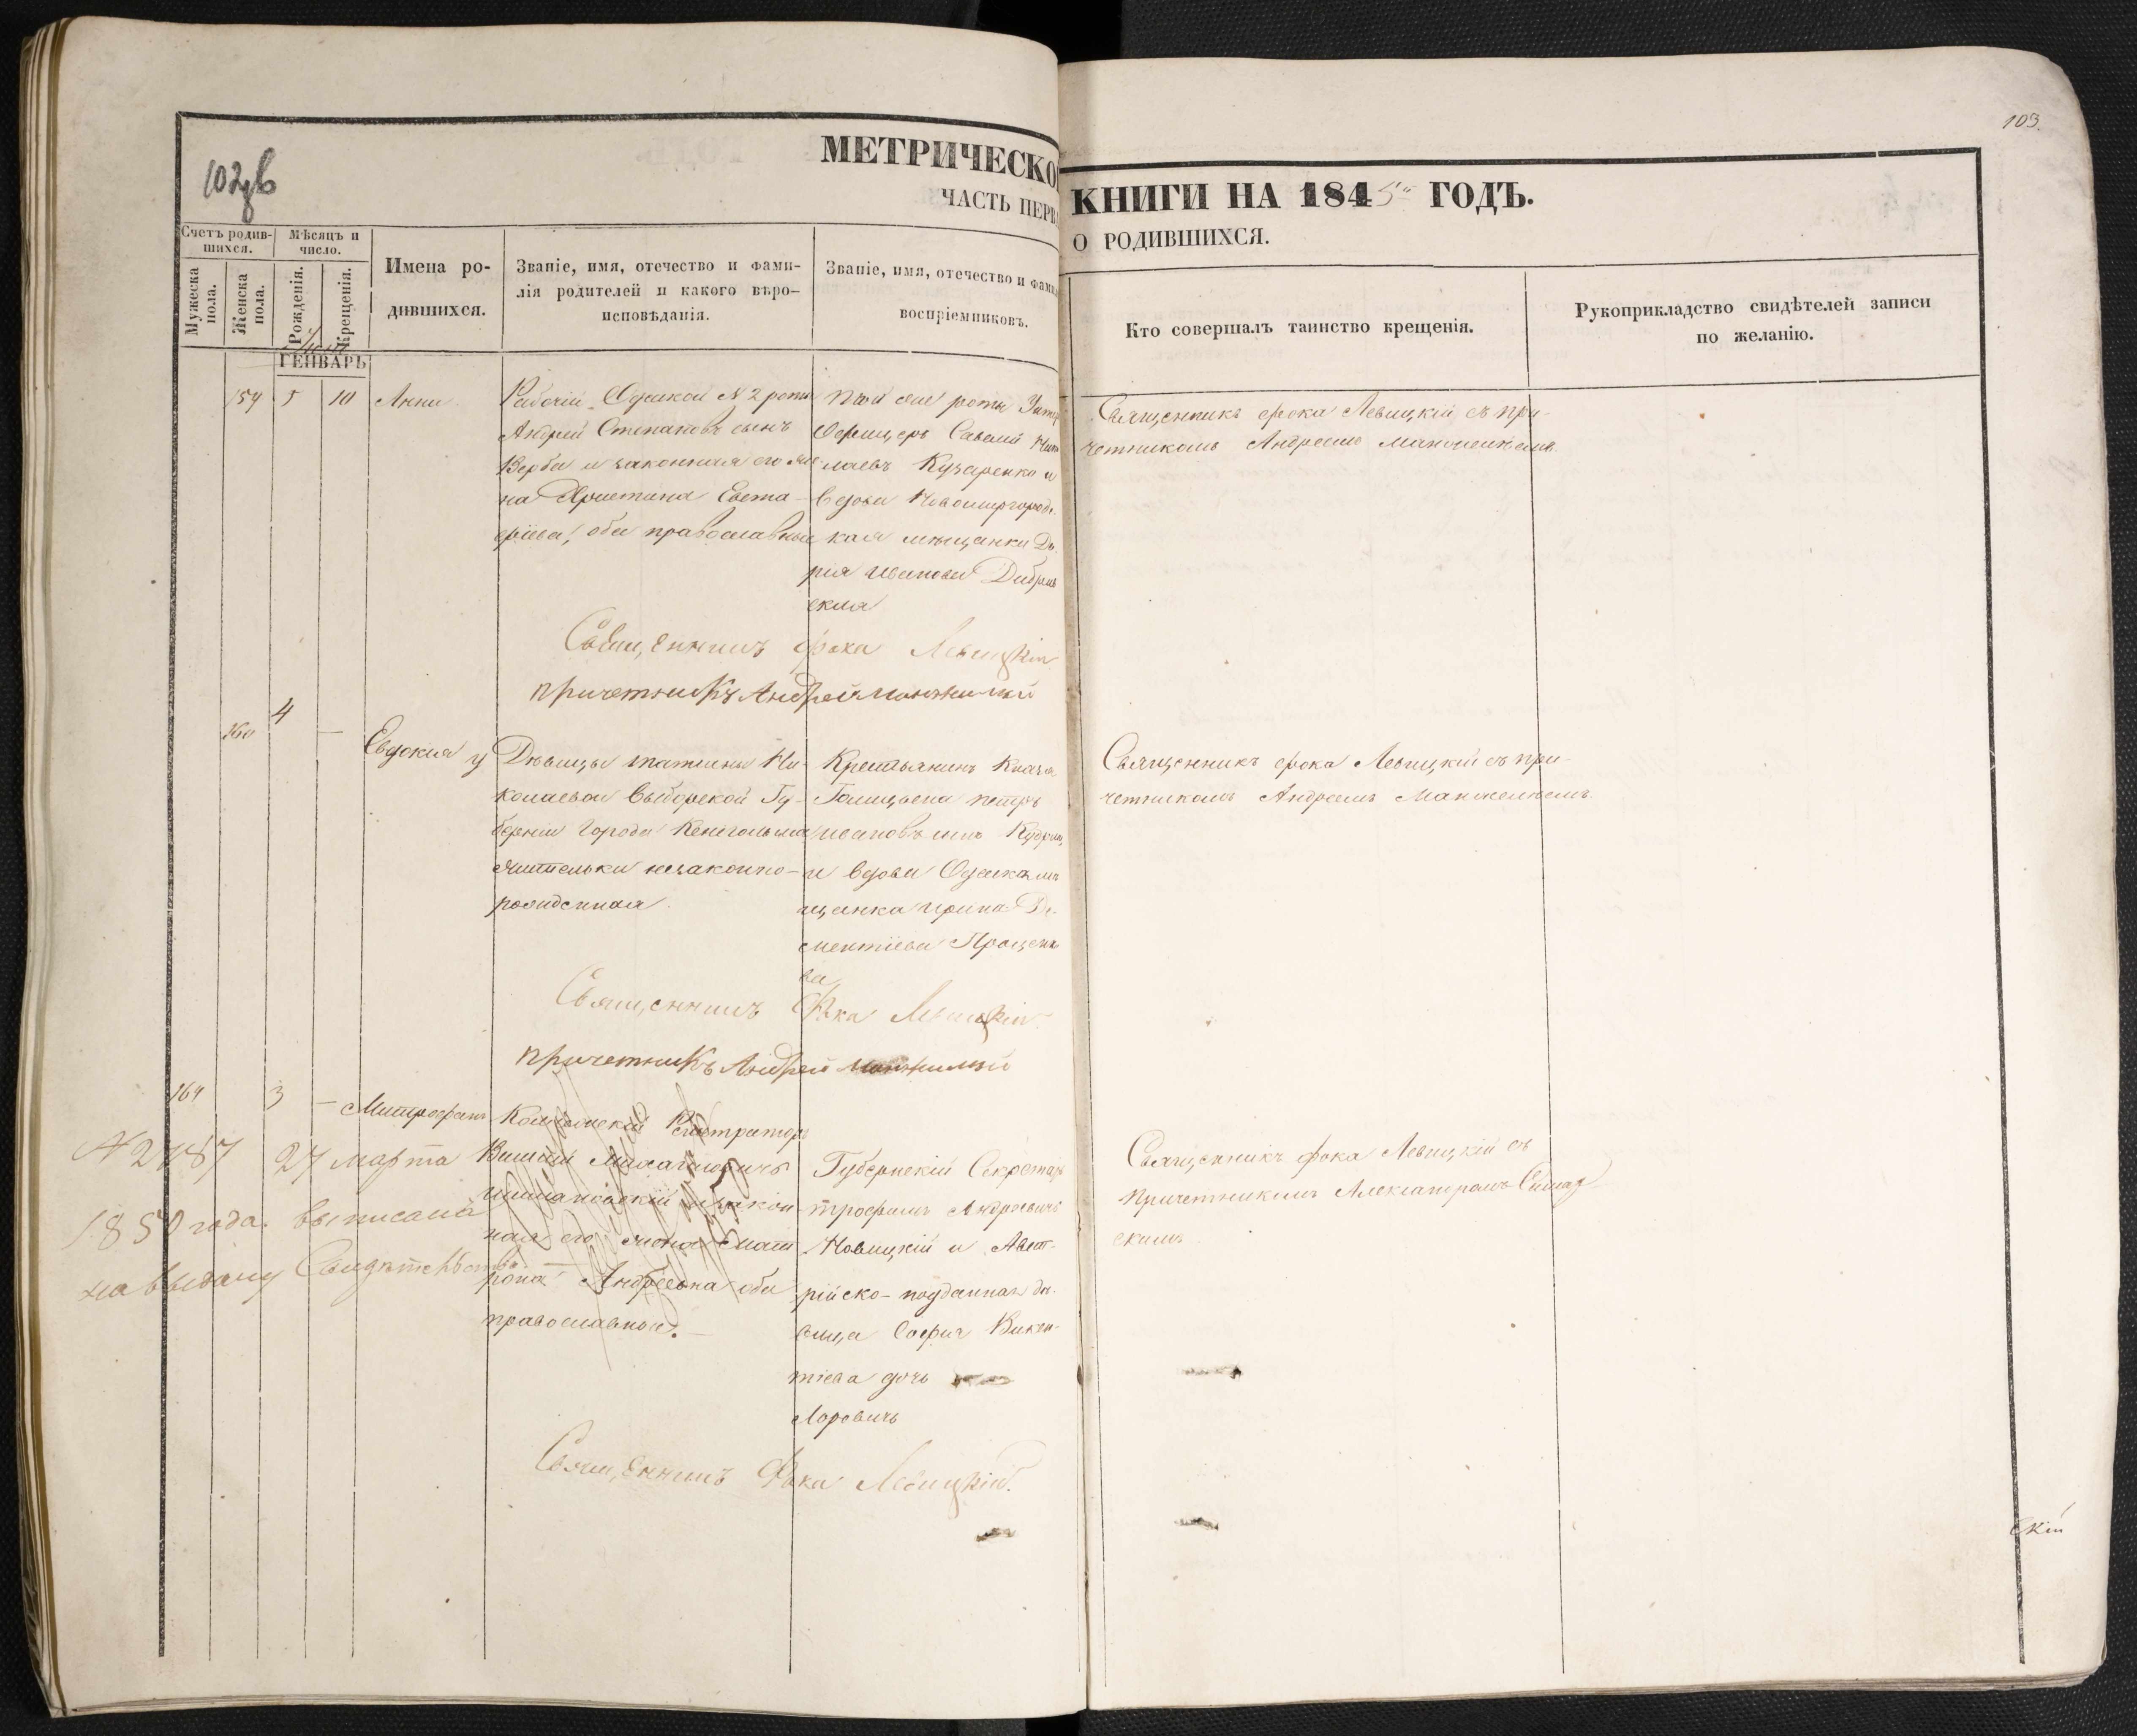 103.
102
МЕТРИЧЕСКО
КНИГИ НА 1845 ГОДЪ.
ЧАСТЬ ПЕРВ
О РОДИВШИХСЯ.
Счетъ родив-
шихся.
Мѣсяцъ и
число.
Мужеска
пола.
Женска
пола.
Рожденія.
Крещенія.
Имена ро-
дившихся.
Званіе, имя, отечество и фами-
лія родителей и какого вѣро-
исповѣданія.
Званіе, имя, отечество и фами
воспріемниковъ.
Кто совершалъ таинство крещенія.
Рукоприкладство свидѣтелей записи
по желанію.
ГЕНВАРЬ
159 5 10 Анна
Рабочій Одеской № 2 роты
Андрей Степановъ сынъ
Верба и законная его же
на Христина Евста-
фіева, оба православные
той же роты Унтер
Офицеръ Савелій Нико
лаевъ Кухаренко и
вдова Новомиргородс
кая мѣщанка Да
рія Иванова
ская
Священникъ Фока Левицкій съ при-
четникомъ Андреемъ
Священникъ Фока Левицкій
Причетникъ Андрей
160 4 — Евдокия у
Дѣвицы Татіяны Ни-
колаевой Выборской Гу-
берніи города Кексгольма
жительки незаконно-
рожденная
Крестьянинъ Князя
Голицына Петръ
Ивановъ сынъ
и вдова Одеская мѣ
щанка Ирина Де-
ментіева Проценко
ва
Священникъ Фока Левицкій съ при-
четникомъ Андреемъ
Священникъ Фока Левицкій
Причетникъ Андрей
164 3 — Митрофанъ
Коллежскій Регистраторъ
Михайловичъ
и закон-
ная его жена Мат
рона Андреевна оба
православные. —
Губернскій Секретарь
Трофимъ Андреевичъ
Новицкій и Авст-
рійско-подданная дѣ-
вица Софія Викен-
тіева дочь
Лоровичъ
Священникъ Фока Левицкій съ
причетникомъ Александромъ
скимъ
№ 2787 27 марта
1850 года. выписана
на выдачу Свидѣтельства
Священникъ Фока Левицкій.
скій